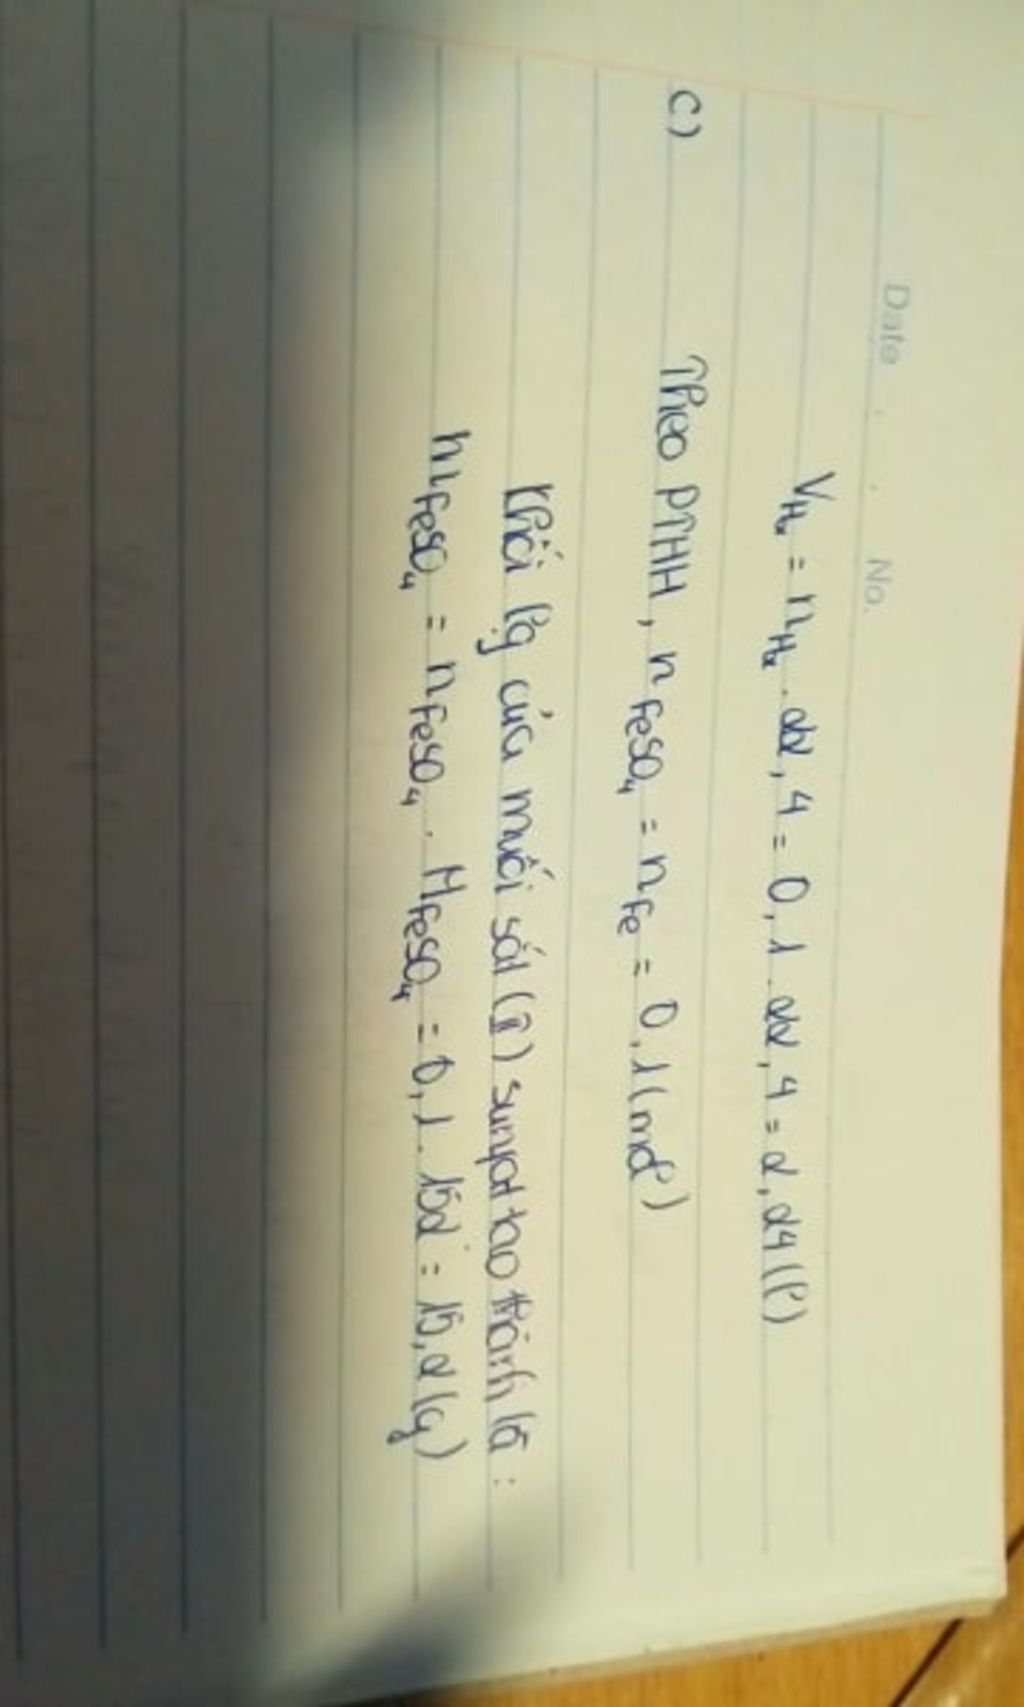 Date . . No.
V_H₂ = n_H₂ . 22,4 = 0,1 . 22,4 = 2,24 (l)
c) Theo PTHH, n_FeSO₄ = n_Fe = 0,1 (mol)
Khối lg của muối sắt (II) sunpat tao thành là :
m_FeSO₄ = n_FeSO₄ . M_FeSO₄ = 0,1 . 152 = 15,2 (g)